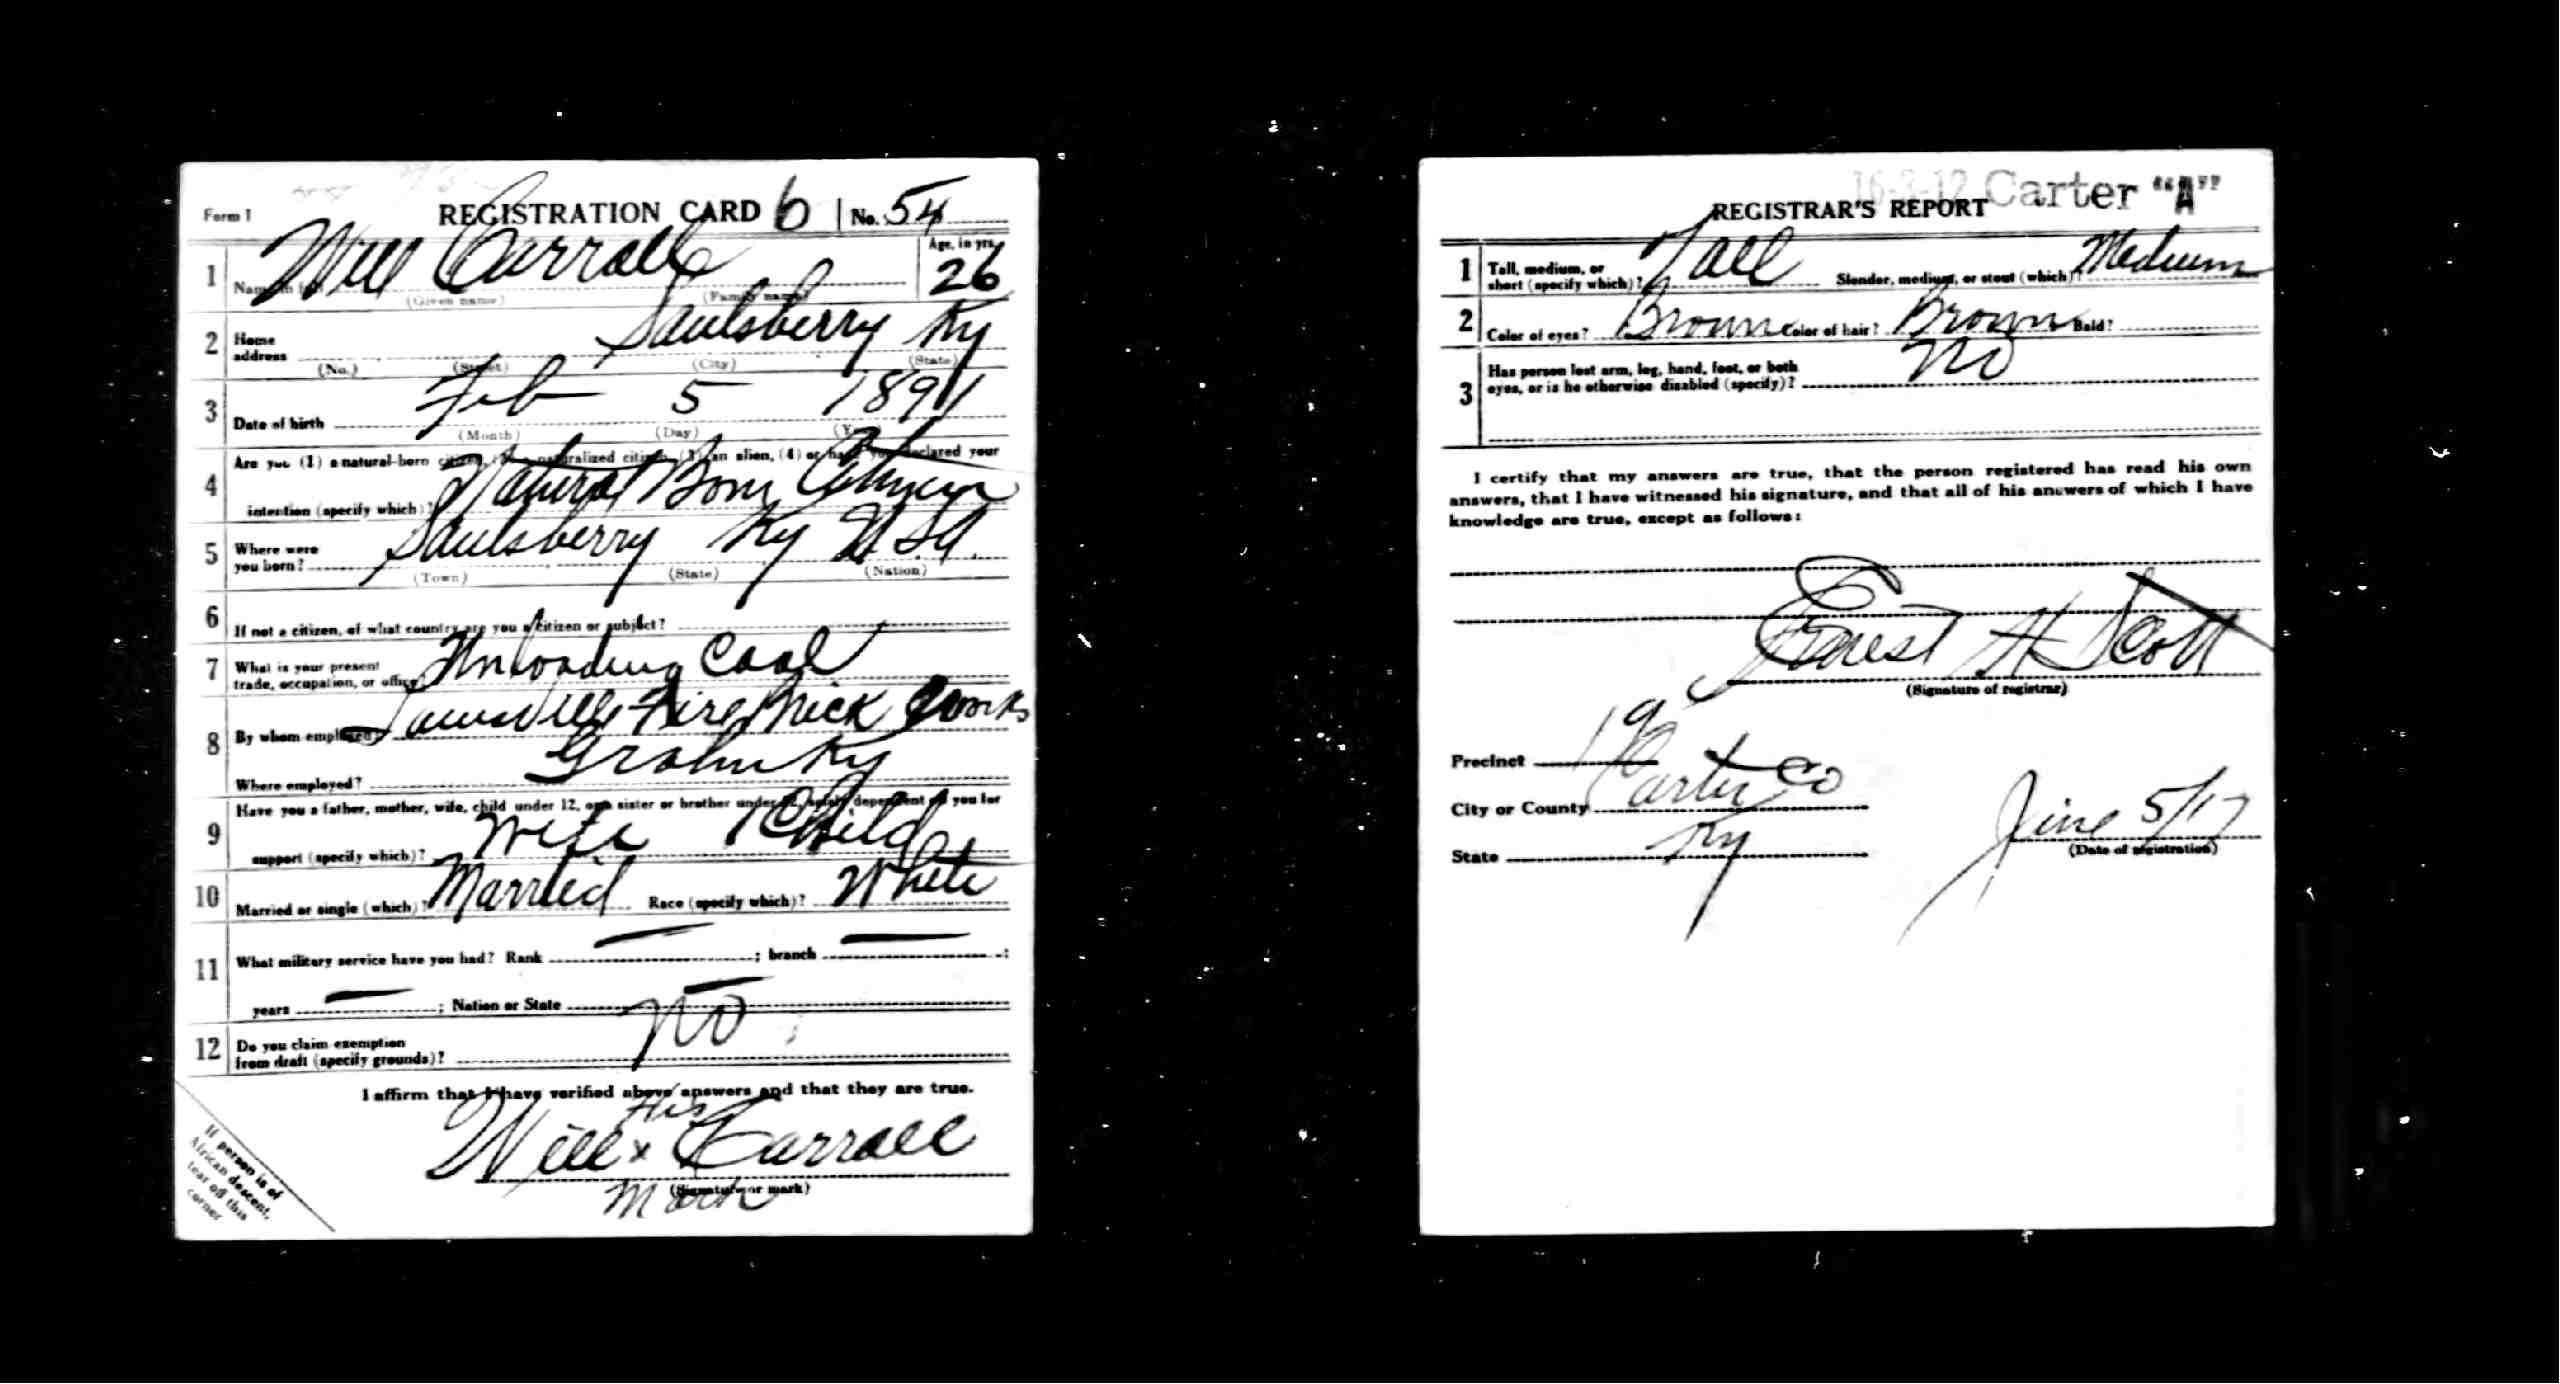 Form 1
REGISTRATION CARD 6 No. 54
1 Name in full Will Carroll Age, in yrs. 26
(Given name) (Family name)
2 Home address Saulsberry Ky
(No.) (Street) (City) (State)
3 Date of birth Feb 5 1891
(Month) (Day)
4 Are you (1) a natural-born citizen, (2) a naturalized citizen, (3) an alien, (4) or have you declared your
intention (specify which)? Natural Born Citizen
5 Where were you born? Saulsberry Ky USA
(Town) (State) (Nation)
6 If not a citizen, of what country are you a citizen or subject?
7 What is your present trade, occupation, or office? Unloading Coal
8 By whom employed? Louisville Fire Brick Works
Where employed? Grahn Ky
9 Have you a father, mother, wife, child under 12, or a sister or brother under 12, solely dependent on you for
support (specify which)? Wife 1 Child
10 Married or single (which)? Married Race (specify which)? White
11 What military service have you had? Rank — ; branch — ;
years — ; Nation or State —
12 Do you claim exemption from draft (specify grounds)? No
I affirm that I have verified above answers and that they are true.
His
Will x Carroll
(Signature or mark)
Mark
If person is of
African descent,
tear off this
corner
16-3-12 Carter "A"
REGISTRAR'S REPORT
1 Tall, medium, or short (specify which)? Tall Slender, medium, or stout (which)? Medium
2 Color of eyes? Brown Color of hair? Brown Bald?
3 Has person lost arm, leg, hand, foot, or both eyes, or is he otherwise disabled (specify)? No
I certify that my answers are true, that the person registered has read his own
answers, that I have witnessed his signature, and that all of his answers of which I have
knowledge are true, except as follows:
Ernest H Scott
(Signature of registrar)
Precinct 19
City or County Carter Co
State Ky
June 5/17
(Date of registration)